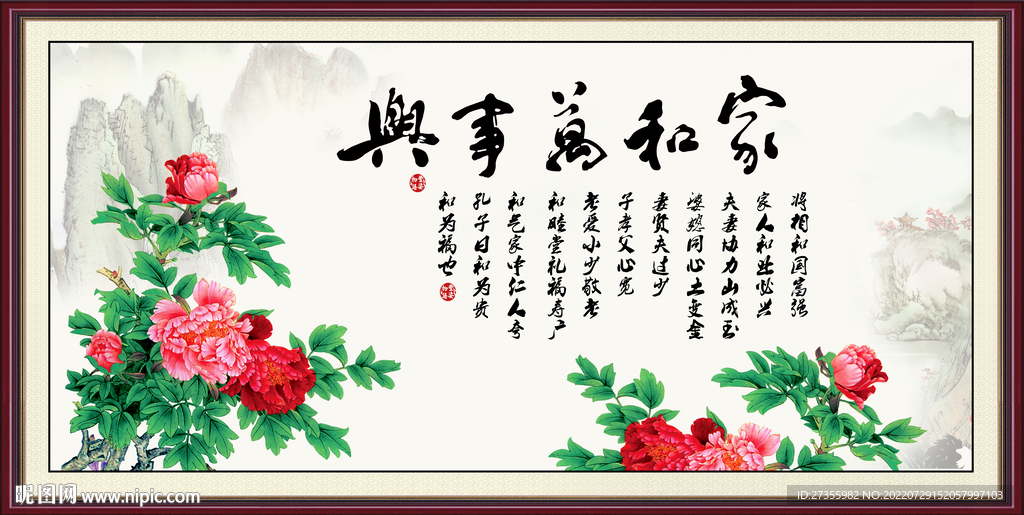 家和萬事興
将相和国富强
家人和业必兴
夫妻协力山成玉
婆媳同心土变金
妻贤夫过少
子孝父心宽
老爱小少敬老
和睦堂礼福寿广
和气家中仁人奇
孔子曰和为贵
和为福也
昵图网 www.nipic.com
ID:27355982 NO:20220729152057997103